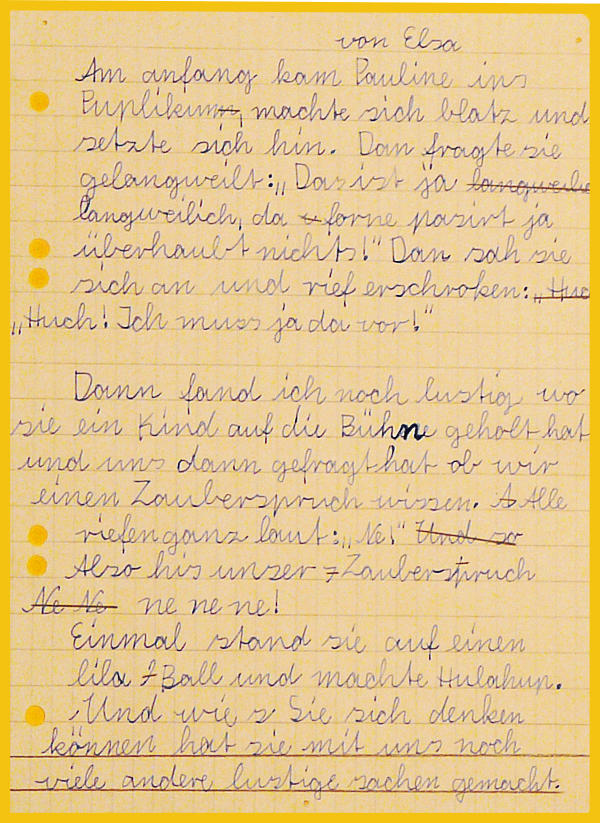 von Elsa
Am anfang kam Pauline ins
Puplikum, machte sich blatz und
setzte sich hin. Dan fragte sie
gelangweilt: „Das ist ja langweile
langweilich, da forne pasirt ja
überhaubt nichts!" Dan sah sie
sich an und rief erschroken: „Huc
„Huch! Ich muss ja da vor!"
Dann fand ich noch lustig wo
sie ein Kind auf die Bühne geholt hat
und uns dann gefragt hat ob wir
einen Zauberspruch wissen. A Alle
riefen ganz laut: „Ne!" Und so
Also his unser Zauberspruch
Ne Ne ne ne ne!
Einmal stand sie auf einen
lila Ball und machte Hulahup.
Und wie s Sie sich denken
können hat sie mit uns noch
viele andere lustige sachen gemacht.